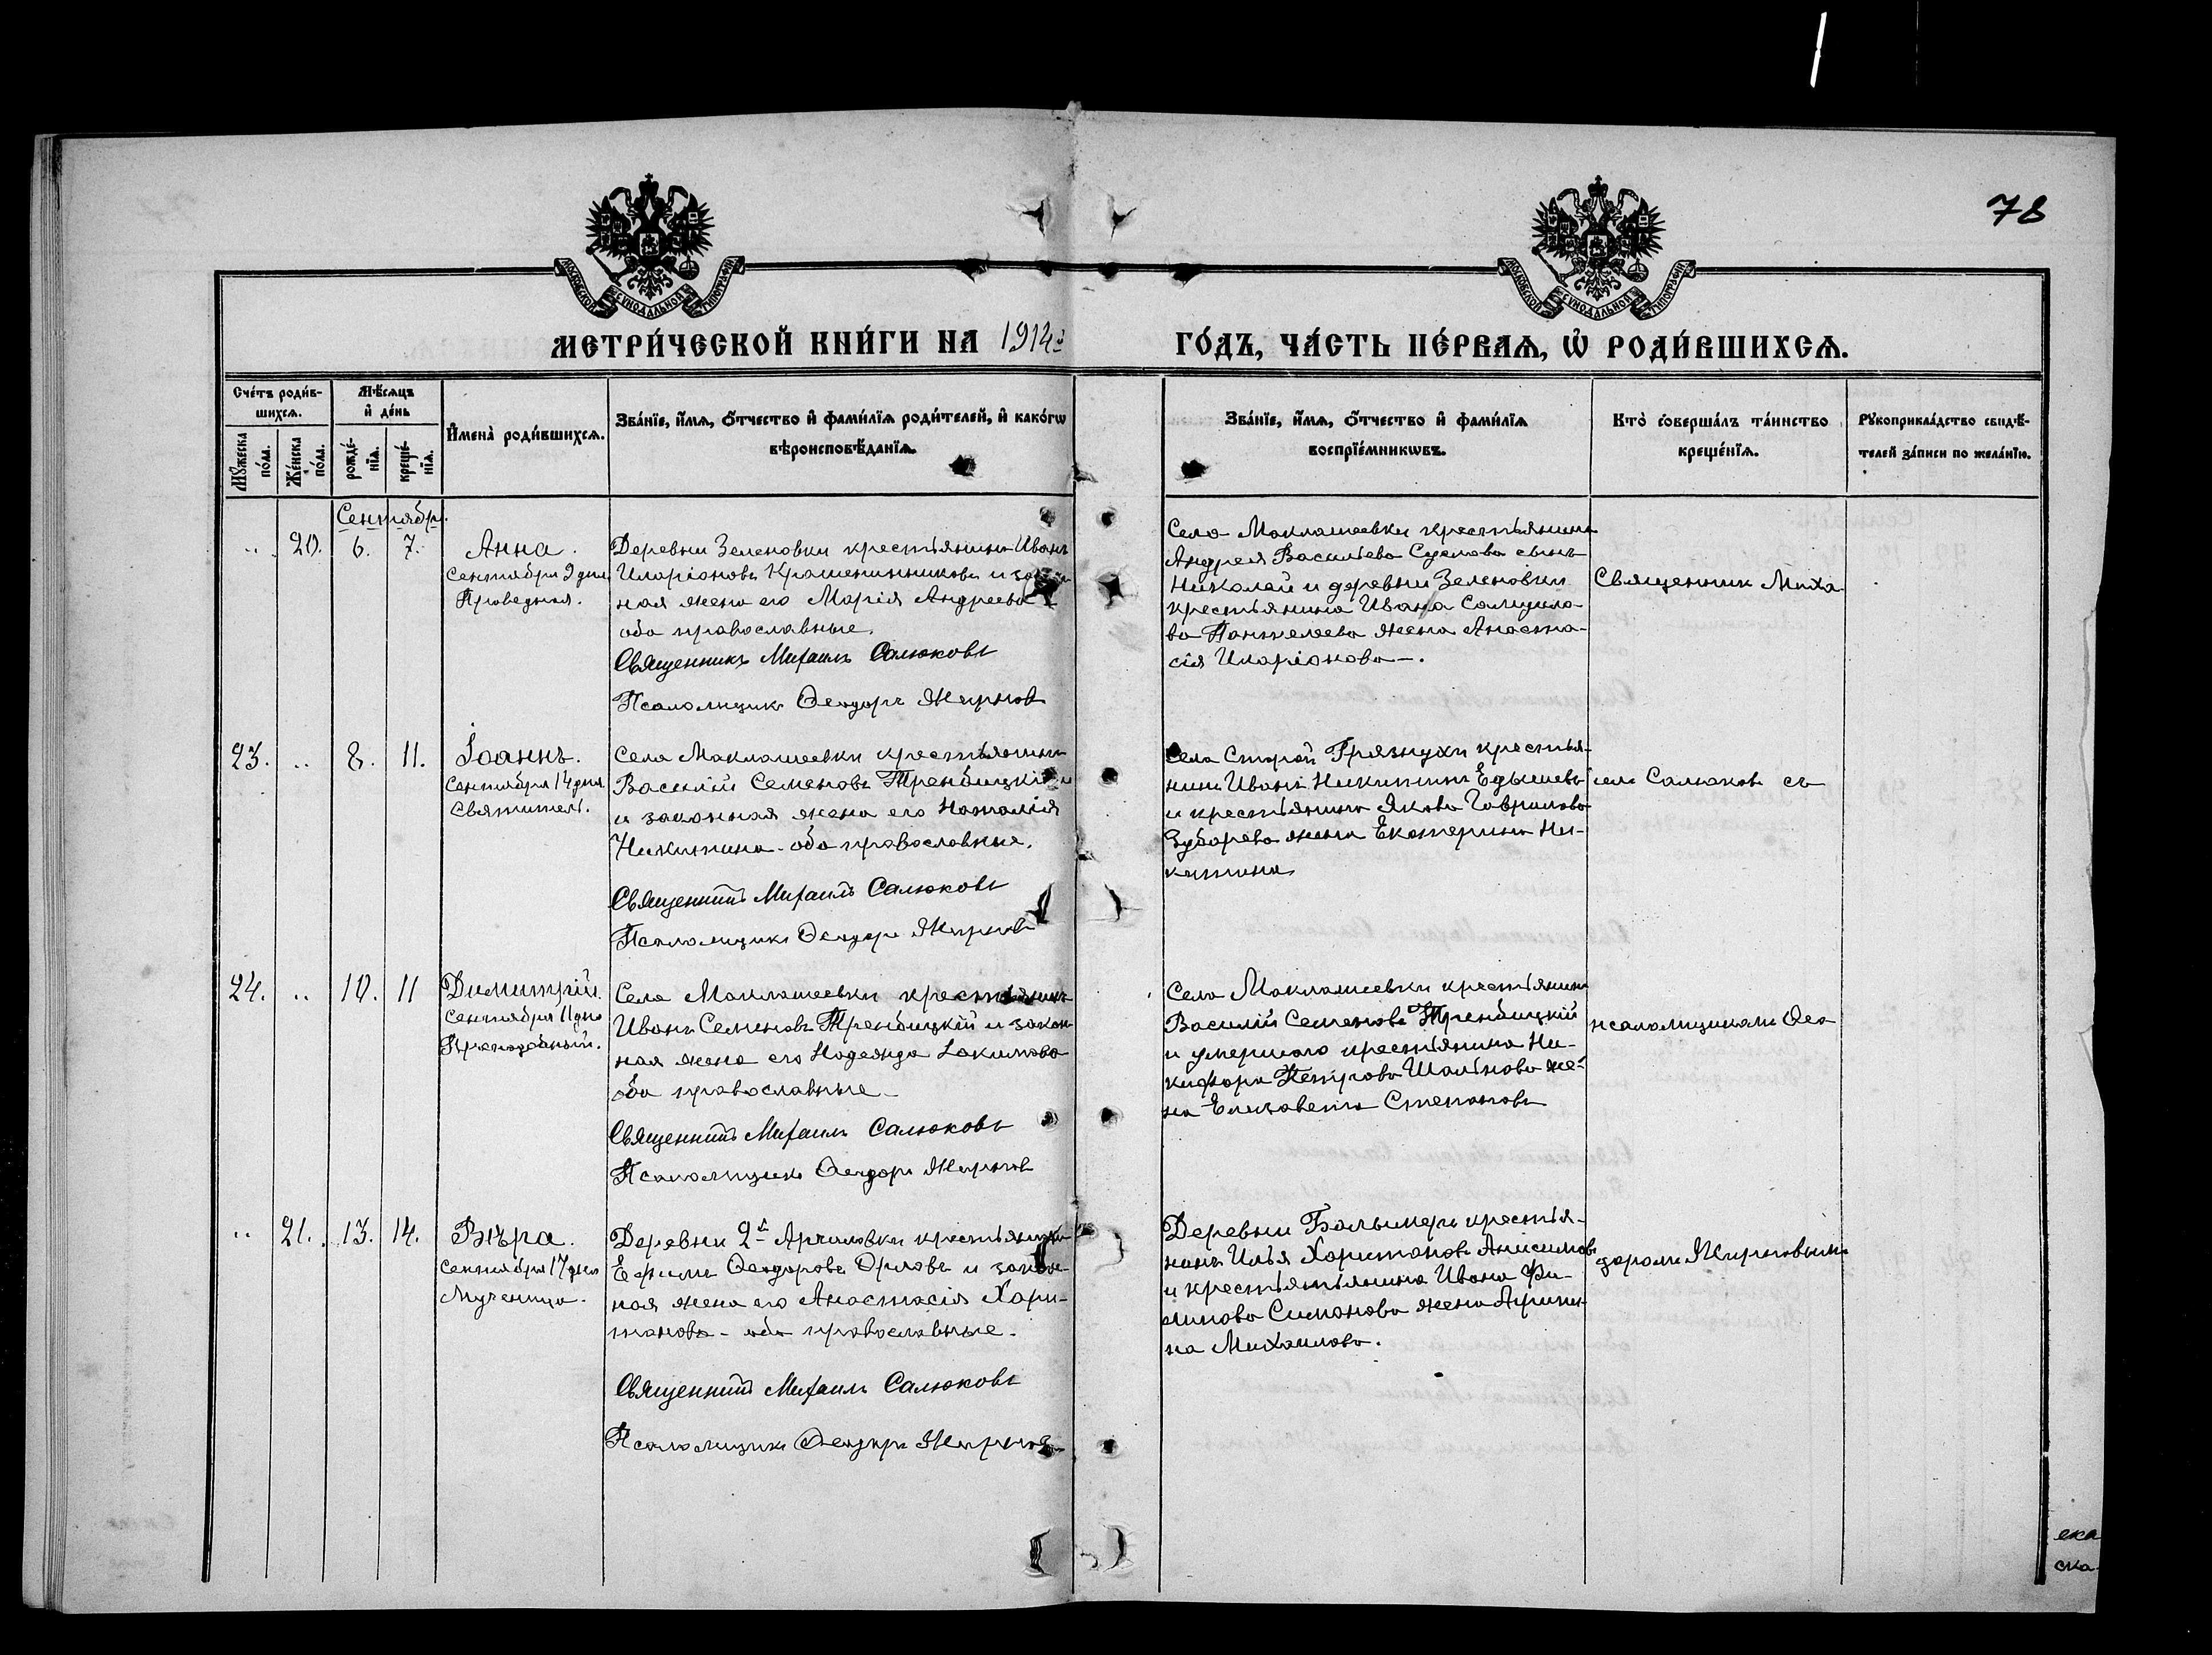 78
МОСКОВСКОЙ СѴНОДАЛЬНОЙ ТИПОГРАФІИ
МОСКОВСКОЙ СѴНОДАЛЬНОЙ ТИПОГРАФІИ
МЕТРИ́ЧЕСКОЙ КНИ́ГИ НА 1914й ГО́ДЪ, ЧА́СТЬ ПЕ́РВАѦ, Ѡ҆ РОДИ́ВШИХСѦ.
Сче́тъ роди́в-
шихсѧ.
Мꙋ́жеска по́ла.
Же́нска по́ла.
Мѣ́сѧцъ
и҆ де́нь
рожде́-
нїѧ.
креще́-
нїѧ.
И҆мена̀ роди́вшихсѧ.
Зва́нїе, и҆́мѧ, ѻ҆́тчество и҆ фами́лїѧ роди́телей, и҆ како́гѡ
вѣроисповѣ́данїѧ.
Зва́нїе, и҆́мѧ, ѻ҆́тчество и҆ фами́лїѧ
воспрїе́мникѡвъ.
Кто̀ соверша́лъ та́инство
креще́нїѧ.
Рꙋкоприкла́дство свидѣ́-
телей за́писи по жела́нїю.
Сентябрь.
.. 20. 6. 7.
Анна.
Сентября 9 дня
Праведная.
Деревни Зеленовки крестьянинъ Иванъ
Иларіоновъ Крашенинниковъ и закон
ная жена его Марія Андреева
оба православные.
Священникъ Михаилъ Салюковъ
Псаломщикъ Ѳеодоръ Жирновъ
Села Маклашеевки крестьянина
Андрея Васильева сынъ
Николай и деревни Зеленовки
крестьянина Ивана Самуило-
ва Пантелеева жена Анаста-
сія Иларіонова.
Священник Миха
23. .. 8. 11.
Іоаннъ.
Сентября 14 дня
Святитель.
Села Маклашеевки крестьянинъ
Василій Семеновъ Трембицкій и
и законная жена его Наталія
Никитина. оба православные.
Священникъ Михаилъ Салюковъ
Псаломщикъ Ѳеодоръ Жирновъ
Села Старой Грязнухи крестья-
нинъ Иванъ Никитинъ Едышевъ
и крестьянина Якова Гаврилова
Зубарева жена Екатерина Ни-
китина
илъ Салюковъ съ
24. .. 10. 11
Димитрій.
Сентября 11 дня
Преподобный.
Села Маклашеевки крестьянинъ
Иванъ Семеновъ Трембицкій и закон
ная жена его Надежда Іакимова
оба православные
Священникъ Михаилъ Салюковъ
Псаломщикъ Ѳеодоръ Жирновъ
Села Маклашеевки крестьянинъ
Василій Семеновъ Трембицкій
и умершаго крестьянина Ни-
кифора Петрова жe-
на Елизавета Степанова
псаломщикомъ Ѳео
.. 21. 13. 14.
Вѣра.
Сентября 17 дня
Мученица.
Деревни 2й Арчиловки крестьянинъ
Ефимъ Ѳеодоровъ Орловъ и закон-
ная жена его Анастасія Хари-
танова - оба православные.
Священникъ Михаилъ Салюковъ
Псаломщикъ Ѳеодоръ Жирновъ
Деревни Балымеръ крестья-
нинъ Илья Харитановъ Анисимовъ
и крестьянина Ивана Фи-
липова Симонова жена Агрипи-
на Михаилова.
доромъ Жирновымъ
ека
ска